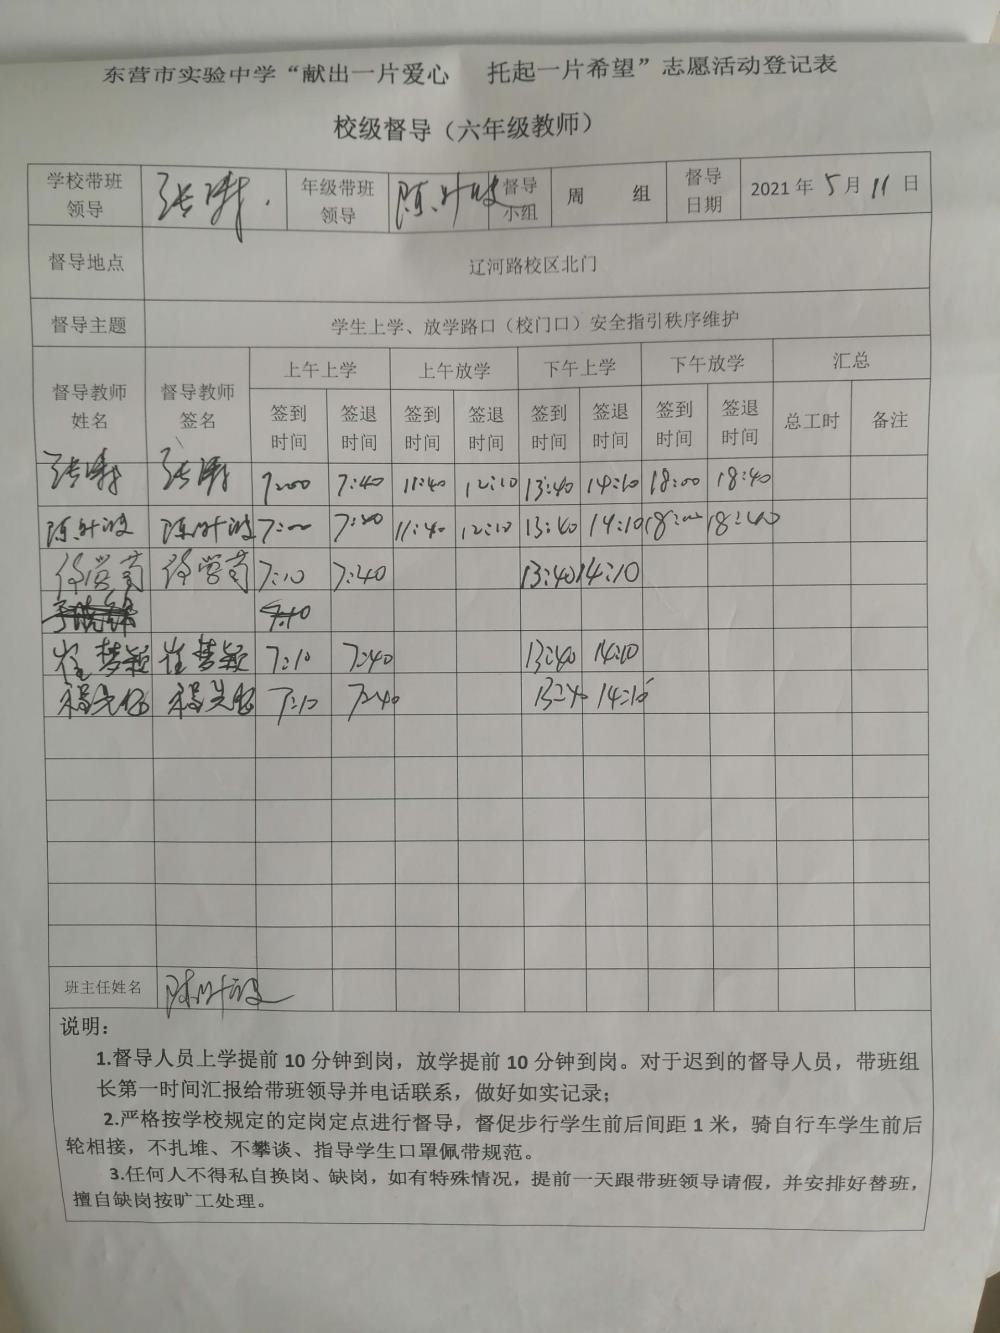 东营市实验中学“献出一片爱心 托起一片希望”志愿活动登记表
校级督导（六年级教师）
学校带班领导 年级带班领导 陈叶波 督导小组 周 组 督导日期 2021年5月11日
督导地点 辽河路校区北门
督导主题 学生上学、放学路口（校门口）安全指引秩序维护
督导教师姓名 督导教师签名 上午上学 上午放学 下午上学 下午放学 汇总
签到时间 签退时间 签到时间 签退时间 签到时间 签退时间 签到时间 签退时间 总工时 备注
7:00 7:40 11:40 12:10 13:40 14:10 18:00 18:40
陈叶波 陈叶波 7:00 11:40 12:10 13:40 14:10 18:00 18:40
7:10 7:40 13:40 14:10
崔梦颖 崔梦颖 7:10 7:40 13:40 14:10
7:10 7:40 13:40 14:10
班主任姓名 陈叶波
说明：
1.督导人员上学提前10分钟到岗，放学提前10分钟到岗。对于迟到的督导人员，带班组
长第一时间汇报给带班领导并电话联系，做好如实记录；
2.严格按学校规定的定岗定点进行督导，督促步行学生前后间距1米，骑自行车学生前后
轮相接，不扎堆、不攀谈、指导学生口罩佩带规范。
3.任何人不得私自换岗、缺岗，如有特殊情况，提前一天跟带班领导请假，并安排好替班，
擅自缺岗按旷工处理。